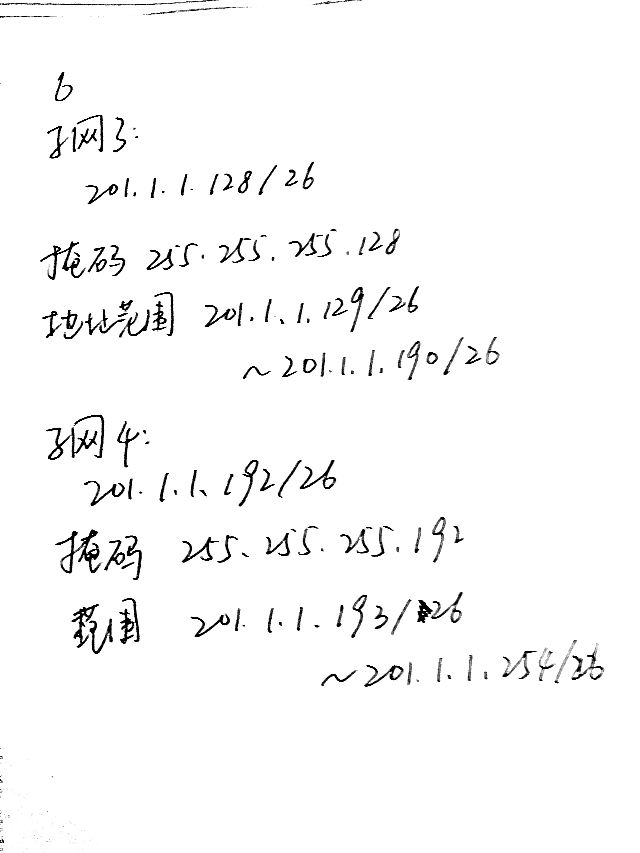 6
子网3:
201.1.1.128/26
掩码 255.255.255.128
地址范围 201.1.1.129/26
~201.1.1.190/26
子网4:
201.1.1.192/26
掩码 255.255.255.192
范围 201.1.1.193/26
~201.1.1.254/26